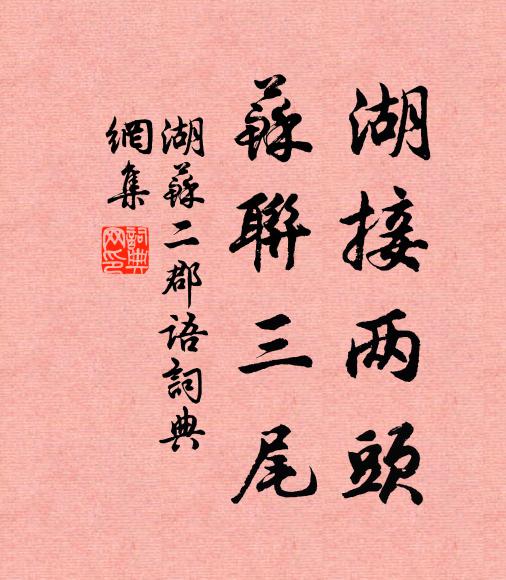 湖接两頭
蘇聯三尾
湖蘇二郡語詞典
網集
詞典網印